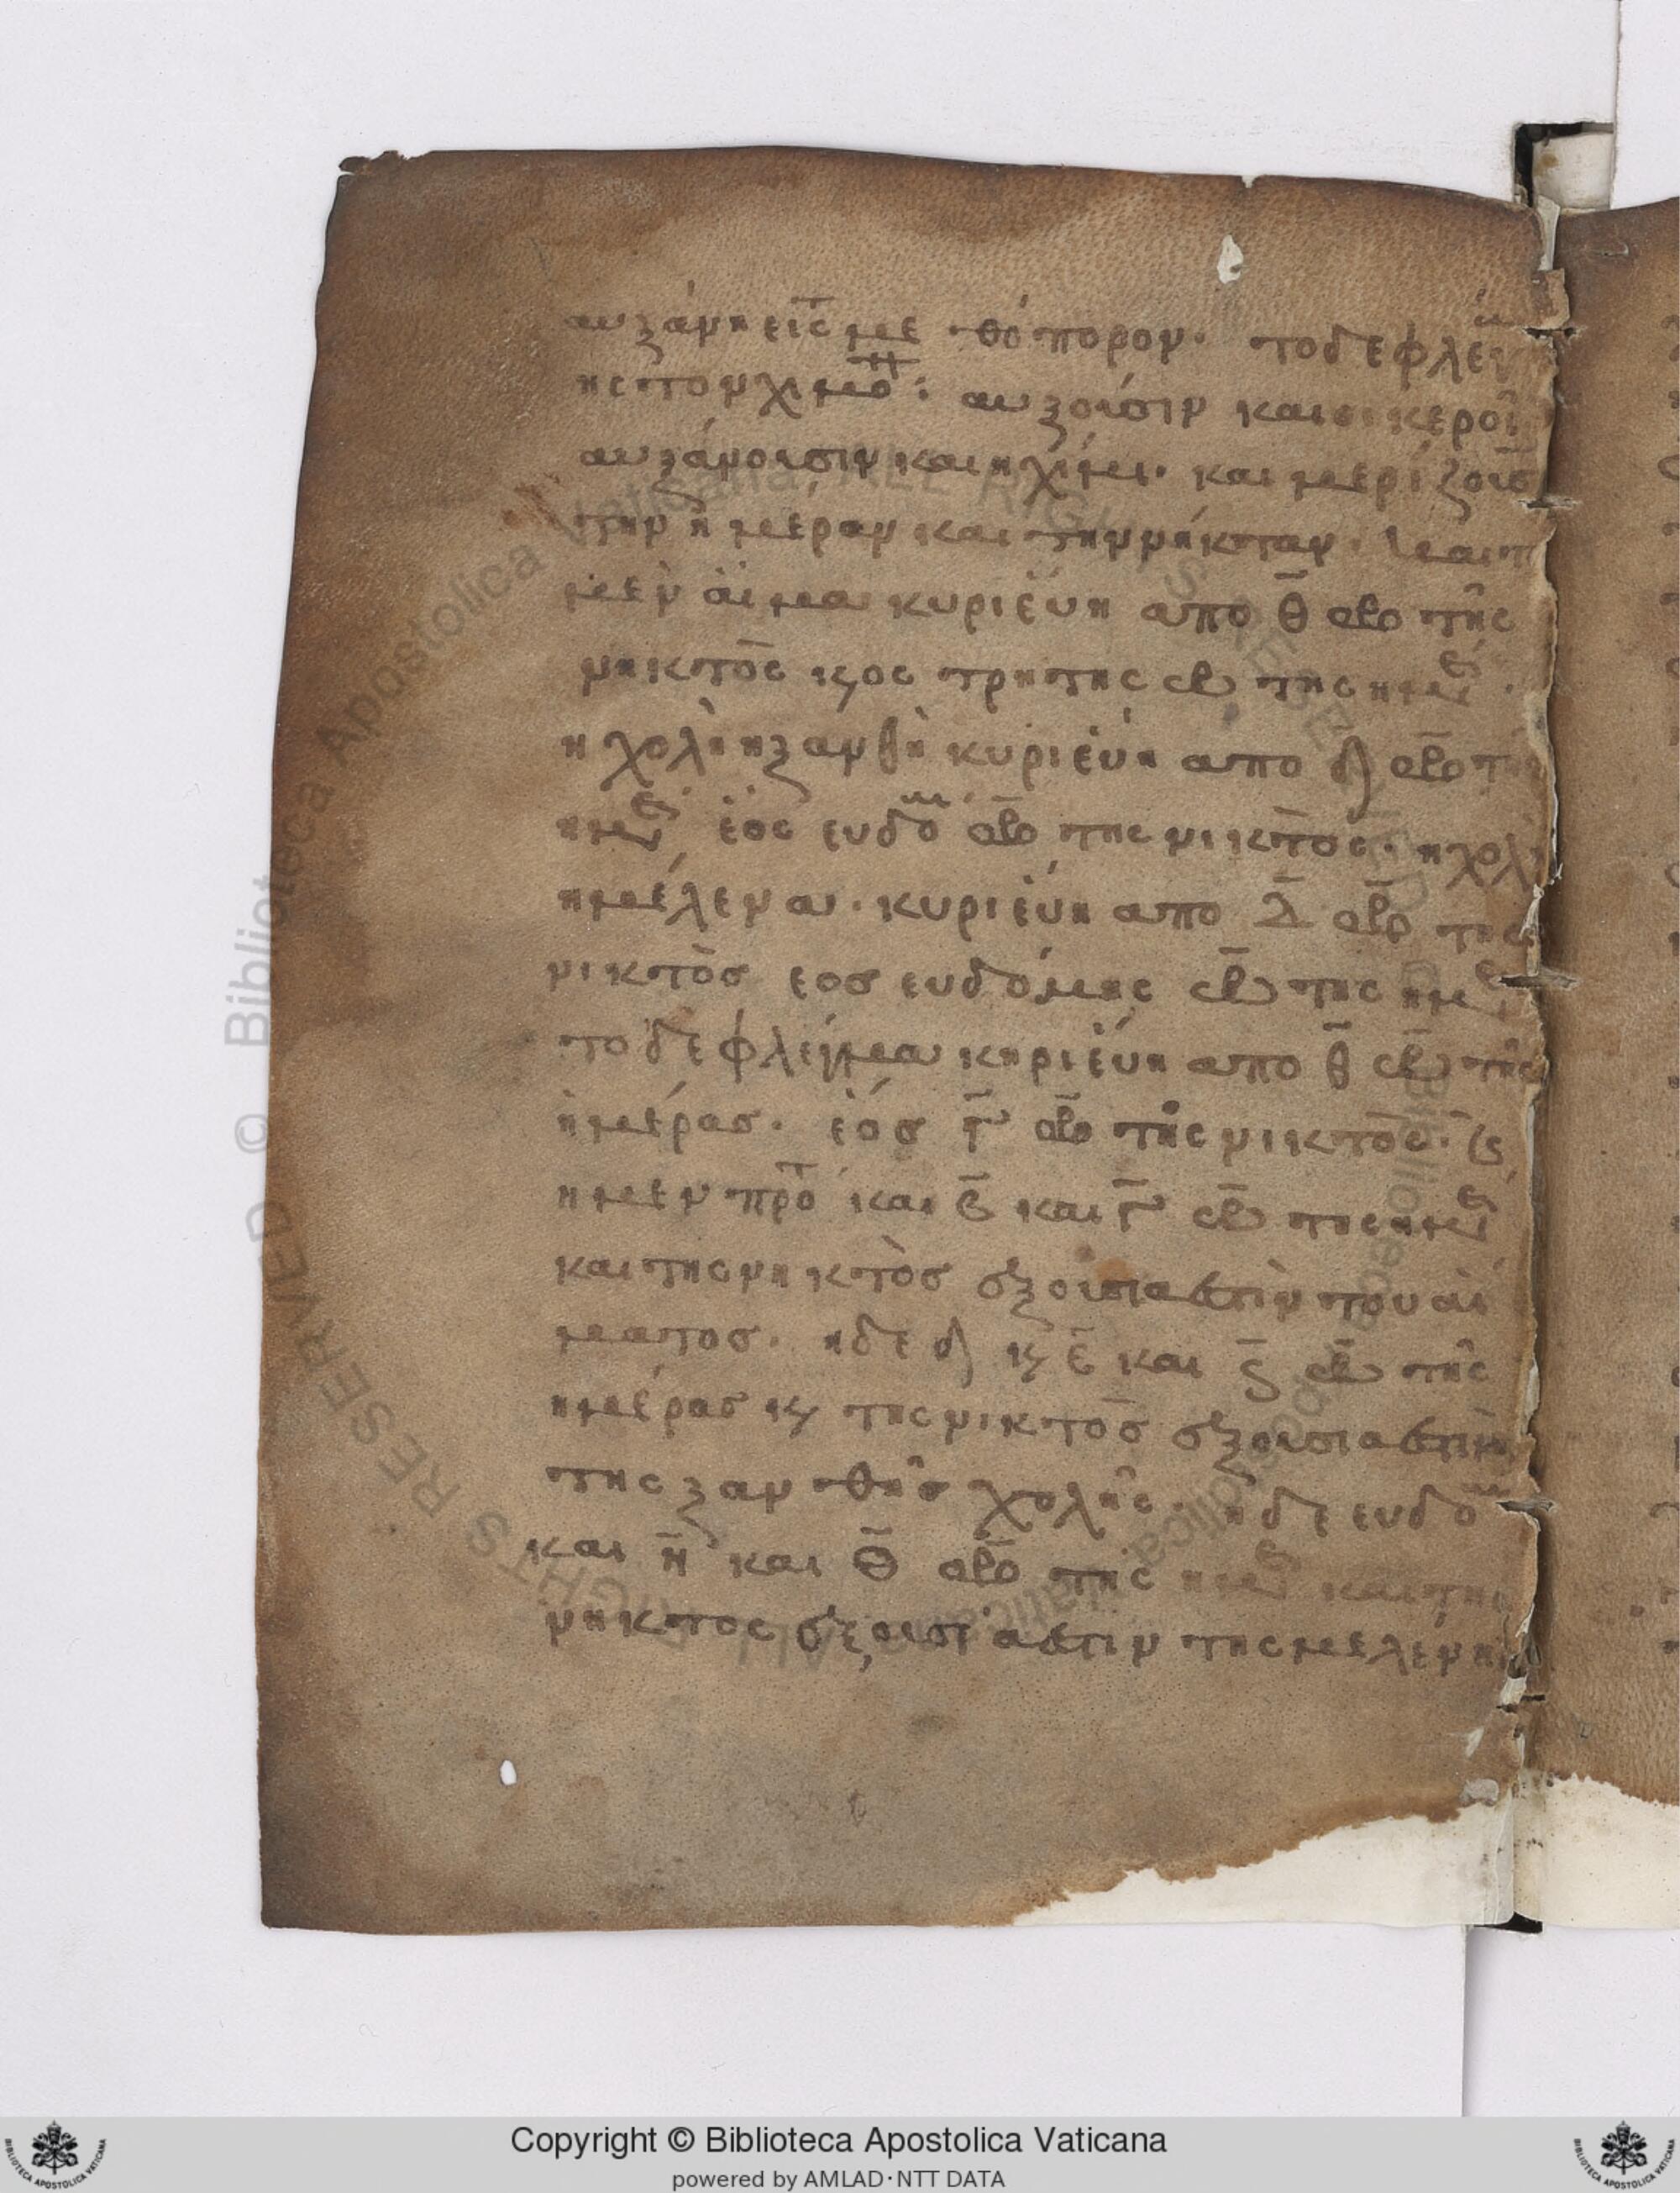 αυξάνη εις με θό πορον· το δε φλεγ
ης τον χιμο̅· αυξουσιν και οι κεροῒ
αυξάνουσιν και η χίμι· και μερίζουσ̅
την ημέραν και την νήκταν· και το
μὲν άιμα κυριέυη απο θ̅ ωρ της
νηκτο̅ς κ εος τρητης ωρ της ημερ·
η χολὴ η ξανθὴ κυριέυη απο δ ωρ της
ημερ έος ευδομ ωρ της νικτὸς· η χολὴ
η μέλενα· κυριέυη απο Δ̅ ωρ της
νικτὸς εος ευδόμης ωρ της ημερ
το δε φλέγμα κηριέυη απο θ̅ ωρ της
ἡμέρας· έος γ̅ ωρ τῆς νικτο̅ς·
η μεν πρ̅ο και β̅ και γ̅ ωρ της ημερ
και της νηκτὸς εξουσιαστὴν του αί
ματος· η δε δ κ ε̅ και ς̅ ωρ τῆς
ημέρας κ της νικτὸς εξουσιαστὴν
της ξανθῆς χολῆς· η δε ευδομ
και η̅ και θ̅ ωρ της ημερ και της
νηκτος εξουσιαστιν της μελένης
Copyright © Biblioteca Apostolica Vaticana
powered by AMLAD·NTT DATA